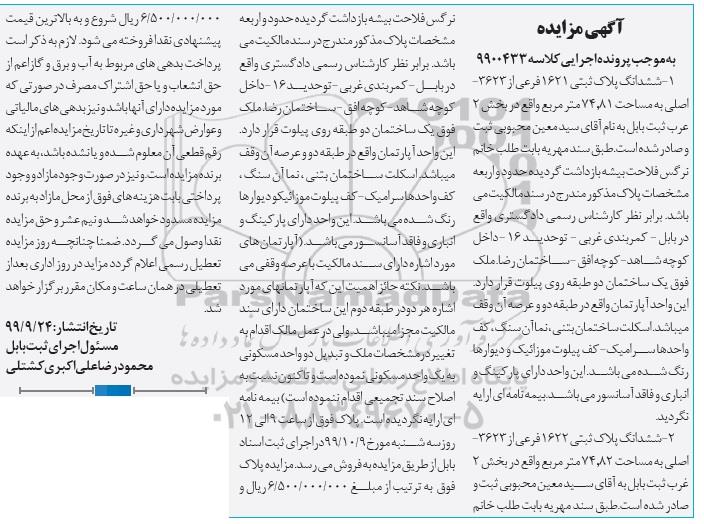 آگهی مزایده
به موجب پرونده اجرایی کلاسه ۹۹۰۰۴۳۳
۱-ششدانگ پلاک ثبتی ۱۶۲۱ فرعی از ۳۶۲۳-
اصلی به مساحت ۷۴,۸۱ متر مربع واقع در بخش ۲
غرب ثبت بابل به نام آقای سید معین محبوبی ثبت
و صادر شده است.طبق سند مهریه بابت طلب خانم
نرگس فلاحت بیشه بازداشت گردیده حدود واربعه
مشخصات پلاک مذکور مندرج در سند مالکیت می
باشد. برابر نظر کارشناس رسمی دادگستری واقع
در بابل - کمربندی غربی - توحید ۱۶ -داخل
کوچه شاهد-کوچه افق - ساختمان رضا.ملک
فوق یک ساختمان دو طبقه روی پیلوت قرار دارد.
این واحد آپارتمان واقع در طبقه دو و عرصه آن وقف
میباشد.اسکلت ساختمان بتنی ، نما آن سنگ ، کف
واحدها سرامیک - کف پیلوت موزائیک و دیوارها
رنگ شده می باشد. این واحد دارای پارکینگ و
انباری و فاقد آسانسور می باشد.بیمه نامه ای ارایه
نگردید.
۲-ششدانگ پلاک ثبتی ۱۶۲۲ فرعی از ۳۶۲۳-
اصلی به مساحت ۷۴,۸۲ متر مربع واقع در بخش ۲
غرب ثبت بابل به آقای سید معین محبوبی ثبت و
صادر شده است.طبق سند مهریه بابت طلب خانم
نرگس فلاحت بیشه بازداشت گردیده حدود واربعه
مشخصات پلاک مذکور مندرج در سند مالکیت می
باشد. برابر نظر کارشناس رسمی دادگستری واقع
در بابل - کمربندی غربی - توحید ۱۶ -داخل
کوچه شاهد- کوچه افق - ساختمان رضا.ملک
فوق یک ساختمان دو طبقه روی پیلوت قرار دارد.
این واحد آپارتمان واقع در طبقه دو و عرصه آن وقف
میباشد. اسکلت ساختمان بتنی ، نما آن سنگ ،
کف واحدها سرامیک - کف پیلوت موزائیک و دیوارها
رنگ شده می باشد. این واحد دارای پارکینگ و
انباری و فاقد آسانسور می باشد.( آپارتمان های
مورد اشاره دارای سند مالکیت با عرصه وقفی می
باشد. نکته حائز اهمیت این که آپارتمانهای مورد
اشاره هر دو در طبقه دوم ساختمان دارای سند
مالکیت مجزا میباشد.ولی در عمل مالک اقدام به
تغییر در مشخصات ملک و تبدیل دو واحد مسکونی
به یک واحد مسکونی نموده است و تاکنون نسبت به
اصلاح سند تجمیعی اقدام ننموده است) بیمه نامه
ای ارایه نگردیده است. پلاک فوق از ساعت ۹ الی ۱۲
روز سه شنبه مورخ ۹۹/۱۰/۹ در اجرای ثبت اسناد
بابل از طریق مزایده به فروش می رسد.مزایده پلاک
فوق به ترتیب از مبلغ ۶/۵۰۰/۰۰۰/۰۰۰ ریال و
۶/۵۰۰/۰۰۰/۰۰۰ ریال شروع و به بالاترین قیمت
پیشنهادی نقدا فروخته می شود. لازم به ذکر است
پرداخت بدهی های مربوط به آب و برق و گاز اعم از
حق انشعاب و یا حق اشتراک مصرف در صورتی که
مورد مزایده دارای آنها باشد و نیز بدهی های مالیاتی
و عوارض شهرداری و غیره تا تاریخ مزایده اعم از اینکه
رقم قطعی آن معلوم شده و یا نشده باشد، به عهده
برنده مزایده است.و نیز در صورت وجود مازاد وجود
پرداختی بابت هزینه های فوق از محل مازاد به برنده
مزایده مسدود خواهد شد و نیم عشر و حق مزایده
نقدا وصول می گردد. ضمنا چنانچه روز مزایده
تعطیل رسمی اعلام گردد مزاید در روز اداری بعد از
تعطیلی در همان ساعت و مکان مقرر برگزار خواهد
شد.
تاریخ انتشار: ۹۹/۹/۲۴
مسئول اجرای ثبت بابل
محمودرضاعلی اکبری کشتلی
ParsNamadData
۰۲۱-۸۸۳۴۹۶۷۰-۵